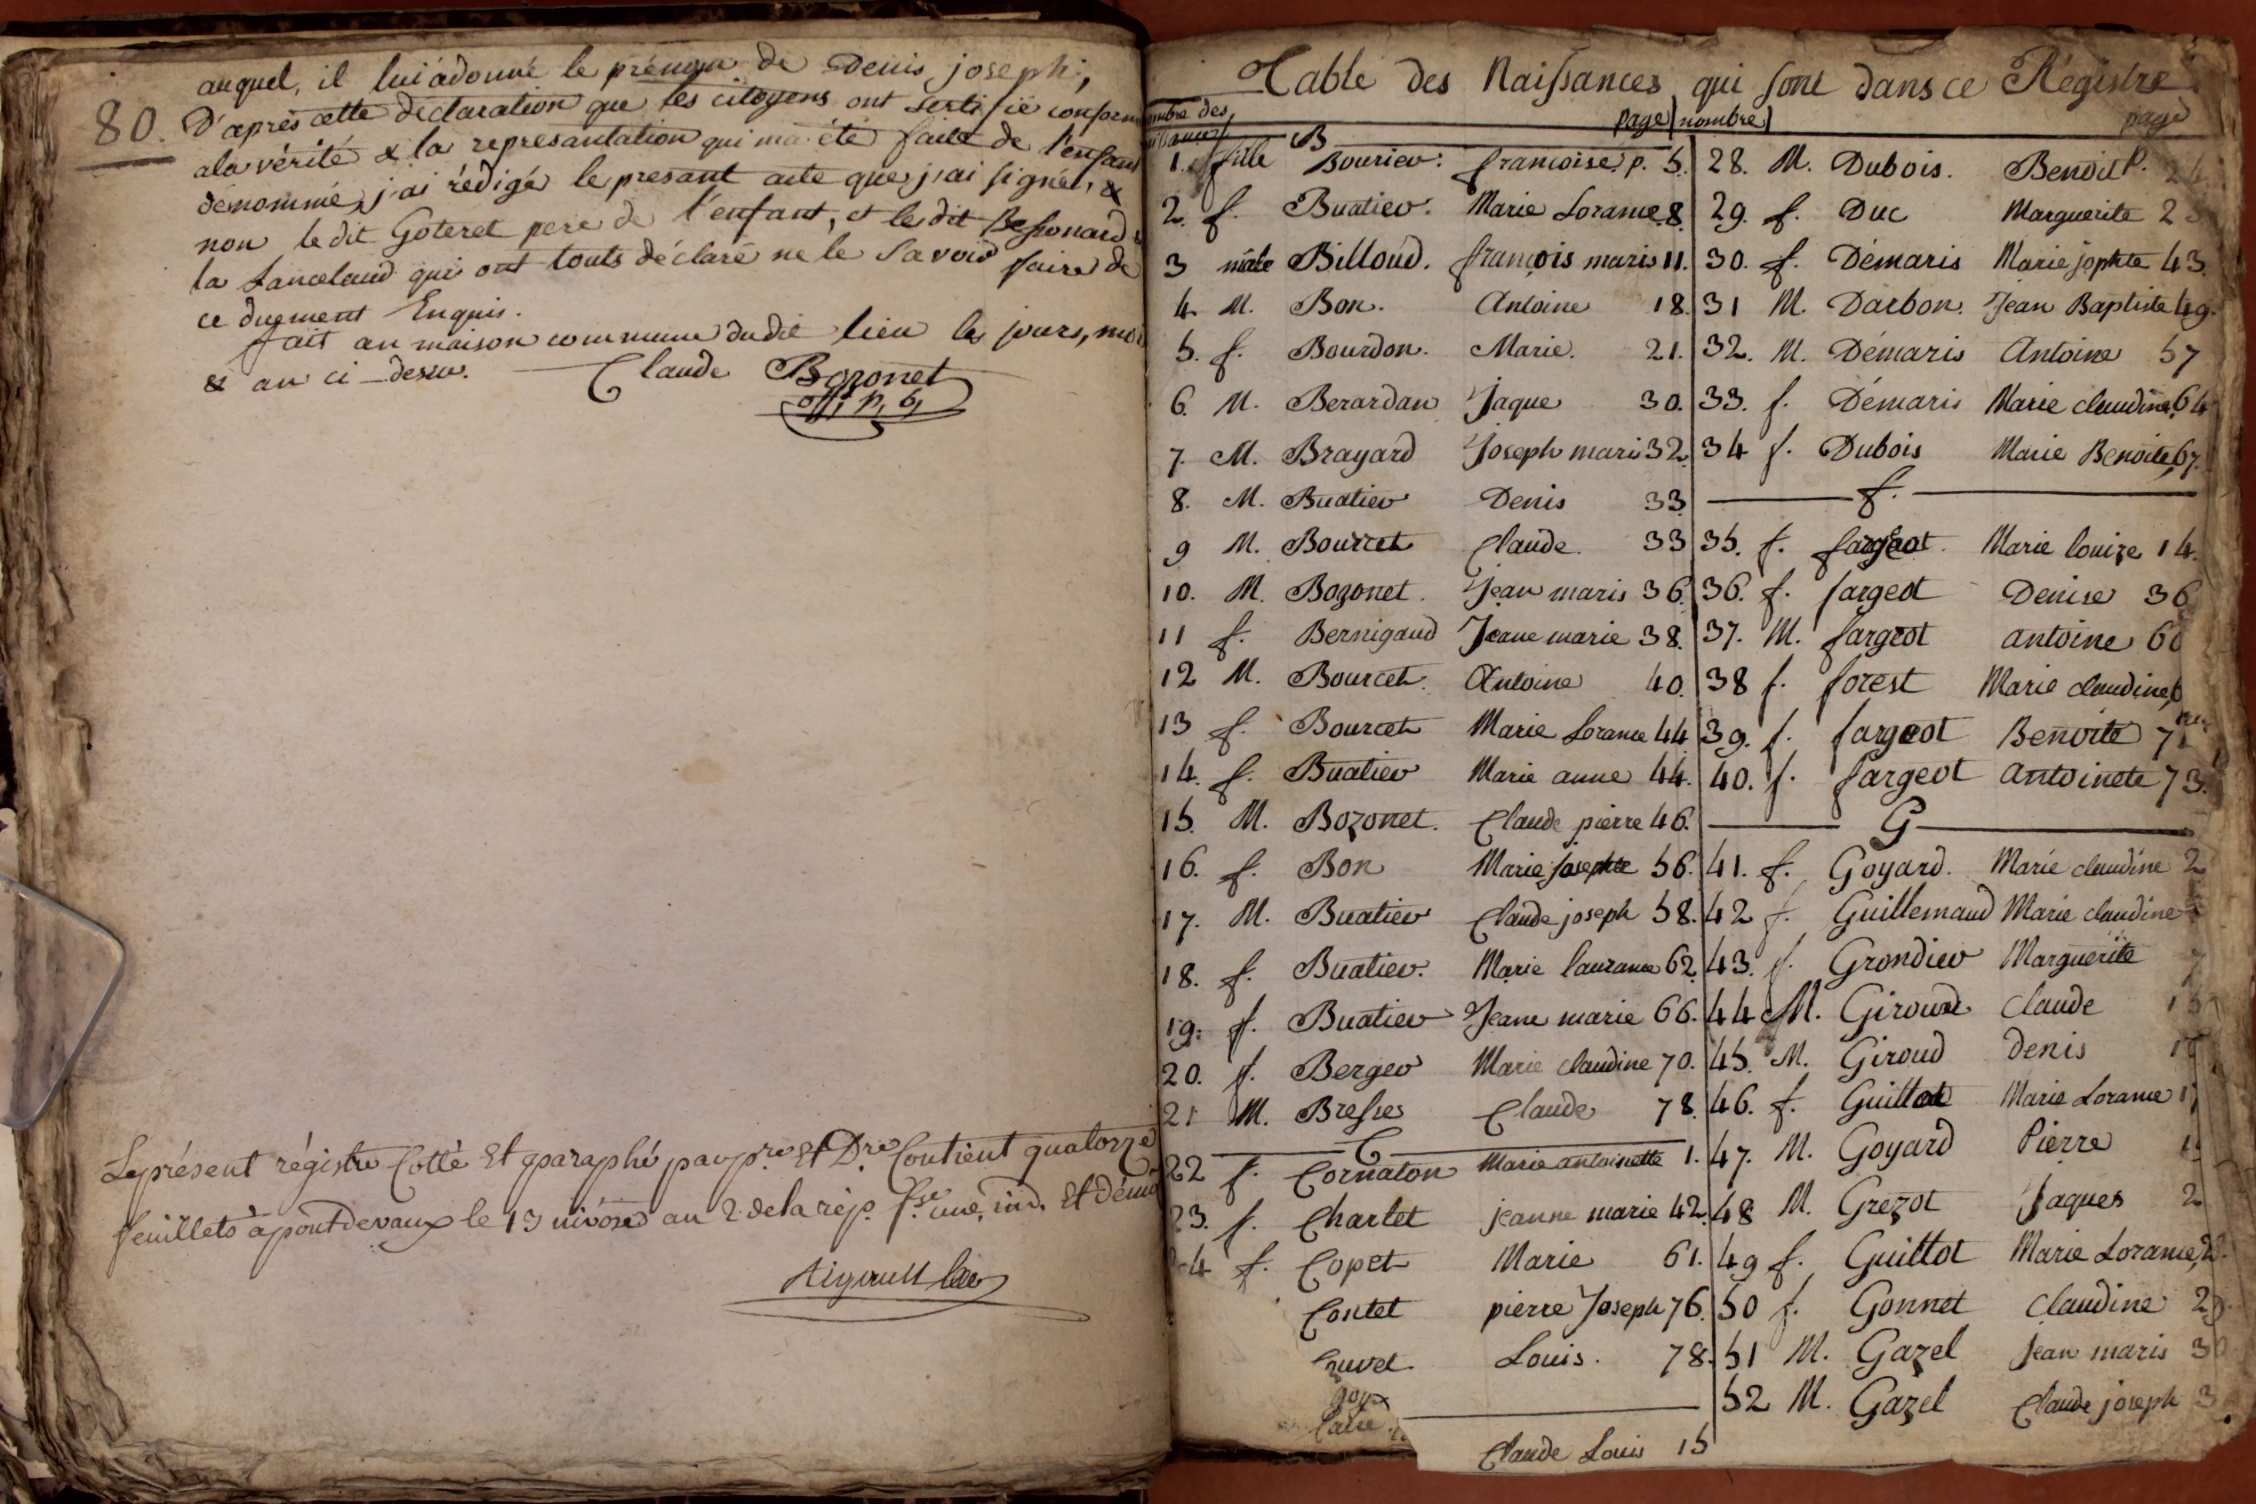 80.
auquel, il lui a donné le prénom de Denis joseph,
D'après cette déclaration que les citoyens ont sertifié conform
a la vérité & la represantation qui ma été faite de l'enfant
dénommé, j'ai rédigé le presant acte que j'ai signé, &
non le dit Goteret pere de l'enfant, et le dit Bessonard
la Lancelaud qui ont touts déclaré ne le savoir faire de
ce duement Enquis.
fait an maison commune dudit lieu les jours, moi
& an ci-dessu. Claude Bozonet
off, p, b,
Le présent régistre Cotté Et paraphé par pre. Et Dre. Contient quatorze
feuillets à pontdevaux le 13 nivose an 2 de la rép. fse. une, ind. Et démo
Table des Naissances qui sont dans ce Régistre
ombre des page nombre page
B
1. fille Bourier. francoise. p. 5. 28. M. Dubois. Benoit P. 24
2. f. Buatier. Marie Lorance 8. 29. f. Duc Marguerite 2
3 mâle Billoud. françois maris 11. 30. f. Démaris Marie jophte 43.
4. M. Bon. Antoine 18. 31 M. Darbon. Jean Baptiste 49.
5. f. Bourdon. Marie. 21. 32. M. Démaris Antoine 57
6. M. Berardan Jaque 30. 33. f. Démaris Marie claudine 64
7. M. Brayard Joseph maris 32. 34 f. Dubois Marie Benoite, 67.
8. M. Buatier Denis 33. f.
9 M. Bourcet Claude. 33 35. f. fargeot. Marie louize 14.
10. M. Bozonet. Jean maris 36. 36. f. fargeot Denise 36
11 f. Bernigaud Jeane marie 38. 37. M. fargeot antoine 60
12 M. Bourcet. Antoine 40. 38 f. forest Marie claudine, 6
13 f. Bourcet Marie Lorance 44 39. f. fargeot Benoite 71
14. f. Buatier Marie anne 44. 40. f. fargeot antoinete 73.
15. M. Bozonet. Claude pierre 46. G
16. f. Bon Marie Josephte 56. 41. f. Goyard. Marie claudine 2
17. M. Buatier Claude joseph 58. 42 f. Guillemaud Marie claudine
18. f. Buatier. Marie laurance 62. 43. f. Grondier Marguerite 7
19. f. Buatier Jeane marie 66. 44 M. Giroud Claude 15
20. f. Berger Marie claudine 70. 45. M. Giroud denis 1
21 M. Bresses Claude 78. 46. f. Guillot Marie Lorance 1
C
22 f. Cornaton Marie antoinette 1. 47. M. Goyard Pierre 1
23. f. Charlet jeanne marie 42. 48 M. Grezot Jaques 2
4 f. Copet Marie 61. 49 f. Guillot Marie Lorance, 2
Contet pierre Joseph 76. 50 f. Gonnet Claudine 2
Louis. 78. 51 M. Gazel Jean maris 3
52 M. Gazel Claude joseph 3
Claude Louis 15